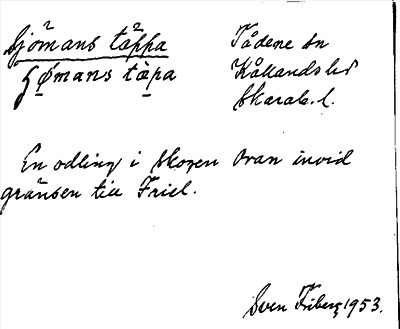 Sjömans täppa
ʃø̱mans tɑ̱̀pa
Tådene sn
Kållandshd
Skarab. l.
En odling i skogen ovan invid
gränsen till Friel.
Sven Friberg 1953.